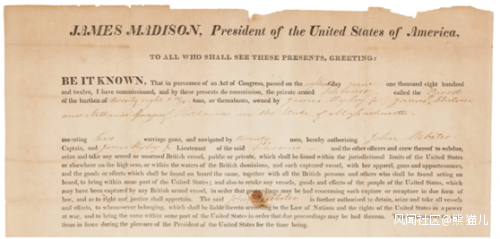 JAMES MADISON, President of the United States of America,
TO ALL WHO SHALL SEE THESE PRESENTS, GREETING:
BE IT KNOWN, That in pursuance of an Act of Congress, passed on the day one thousand eight hundred
and twelve, I have commissioned, and by these presents do commission, the private armed called the
of the burthen of twenty eight tons, or thereabouts, owned by James
and in the State of Massachusetts
mounting two carriage guns, and navigated by twenty men, hereby authorizing John Webster
Captain, and James Lieutenant of the said and the other officers and crew thereof to subdue,
seize and take any armed or unarmed British vessel, public or private, which shall be found within the jurisdictional limits of the United States
or elsewhere on the high seas, or within the waters of the British dominions, and such captured vessel, with her apparel, guns and appurtenances,
and the goods or effects which shall be found on board the same, together with all the British persons and others who shall be found acting on
board, to bring within some port of the United States; and also to retake any vessels, goods and effects of the people of the United States, which
may have been captured by any British armed vessel, in order that proceedings may be had concerning such capture or recapture in due form of
law, and as to right and justice shall appertain. The said John Webster is further authorised to detain, seize and take all vessels
and effects, to whomsoever belonging, which shall be liable thereto according to the Law of Nations and the rights of the United States as a power
at war, and to bring the same within some port of the United States in order that due proceedings may be had thereon.
tinue in force during the pleasure of the President of the United States for the time being.
风闻社区@熊猫儿